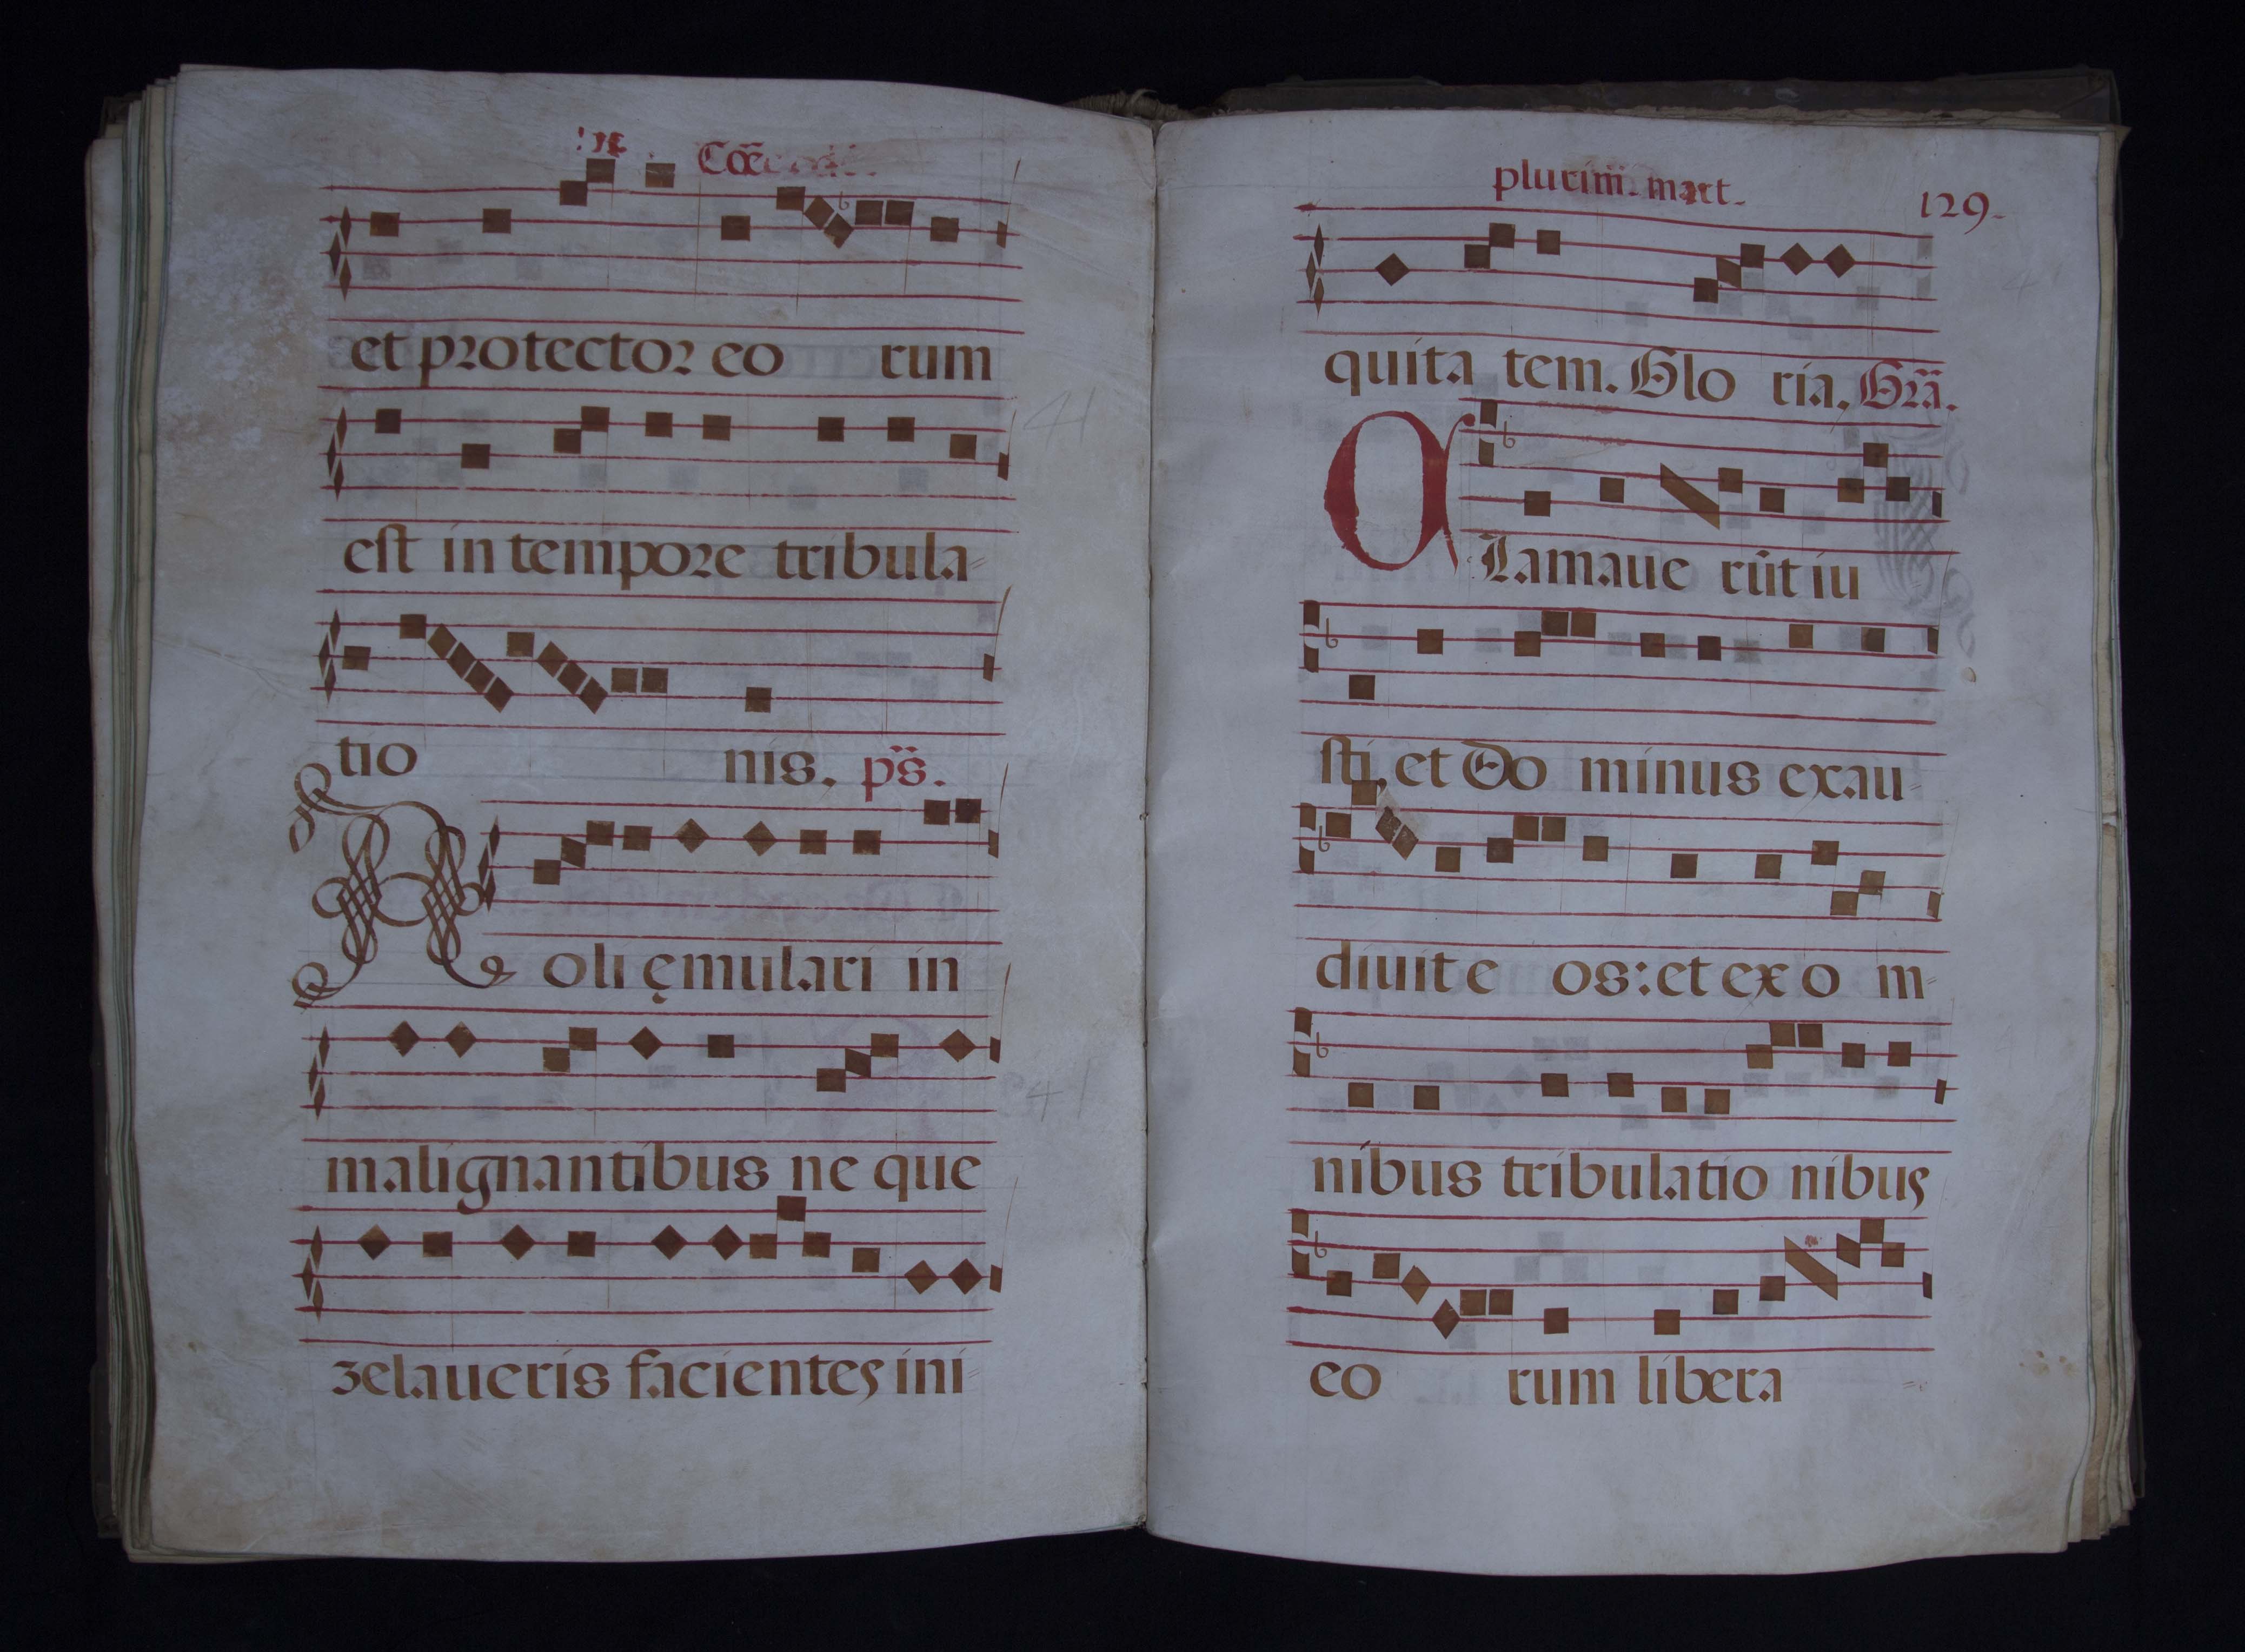 Cōē
et protector eo rum
est in tempore tribula-
tio nis. ps̄.
Noli ęmulari in
malignantibus ne que
zelaueris facientes ini-
plurim̄. mart.
129.
quita tem. Glo ria, Grā.
Clamaue rūt iu
sti, et Do minus exau
diuit e os: et ex o m-
nibus tribulatio nibus
eo rum libera -